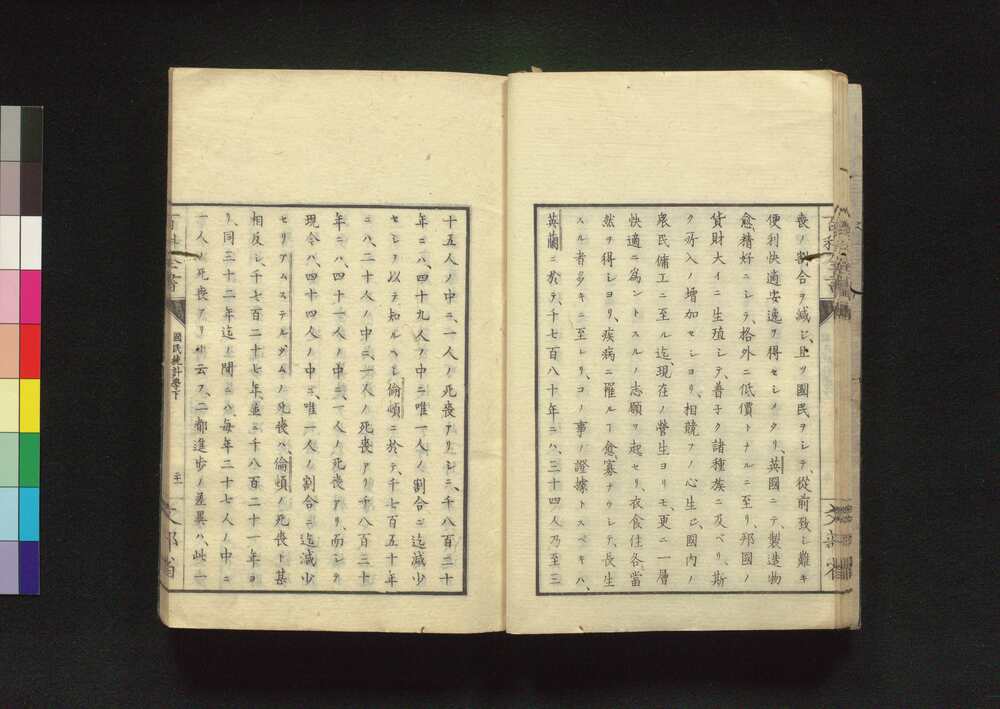 喪ノ割合ヲ減シ、且ツ國民ヲシテ、從前致シ難キ
便利快適安逸ヲ得セシメタリ、英國ニテ、製造物
愈精好ニシテ、格外ニ低價トナルニ至リ、邦國ノ
貨財大イニ生殖シテ、普子ク諸種族ニ及ベリ、斯
ク所入ノ増加セシヨリ、相競フノ心生シ、國内ノ
衆民傭工ニ至ル迄、現在ノ營生ヨリモ、更ニ一層
快適ニ爲ントスルノ志願ヲ起セリ、衣食住各當
然ヲ得シヨリ、疾病ニ罹ルヿ愈寡ナウシテ、長生
スル者多キニ至レリ、コノ事ノ證據トスベキハ、
英蘭ニ於テ、千七百八十年ニハ、三十四人乃至三
十五人ノ中ニ、一人ノ死喪アリシニ、千八百二十
年ニハ、四十九人ノ中ニ唯一人ノ割合ニ迄減少
セシヲ以テ知ルヘシ、倫頓ニ於テ、千七百五十年
ニハ、二十人ノ中ニ、一人ノ死喪アリ、千八百三十
年ニハ、四十一人ノ中ニ、一人ノ死喪アリ、而シテ
現今ハ、四十四人ノ中ニ、唯一人ノ割合ニ迄減少
セリ、アムステルダムノ死喪ハ、倫頓ノ死喪ト甚
相反シ、千七百二十七年並ニ千八百二十一年ヨ
リ同三十二年迄ノ間ニハ、毎年二十七人ノ中ニ
一人ノ死喪アリト云フ、二都進歩ノ差異ハ、此一
百科全書
國民統計學下
二十一
文部省